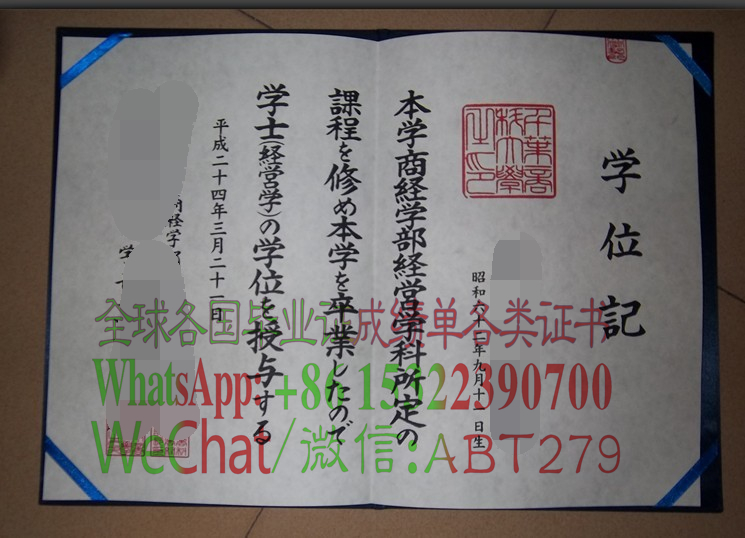 学位記
昭和六十二年九月十一日生
本学商経学部経営学科所定の
課程を修め本学を卒業したので
学士(経営学)の学位を授与する
平成二十四年三月二十一日
商経学部
学
全球各国毕业证成绩单各类证书
WhatsApp: +86 15322390700
WeChat/微信:ABT279